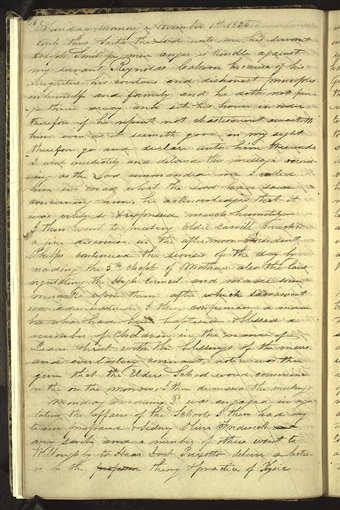 Sunday morning November 1st 1835
verily thus Saith the Lord unto me, his servant
Joseph Smith jr min[e] anger is kindle[d] against
my servant Reynolds Cahoon because of his
iniquities his covetous and dishonest principles
in himself and family and he doth not purge
them away and set his house in order
therefore if he repent not chastisement awaiteth
him even as it seemeth good in my sight
therefore go and declare unto him these words
I went imediately and delivered this message according
as the Lord commanded me I called
him in & read what the Lord had said
concerning him, he acknowledged that it
was verily so & expressed much humility—
I then went to meeting elder Carrill preached
a fine discourse, in the afternoon President
Phelps continued the services of the day by
reading the 5th chapt. of Mathew also the laws
regulating the High Council and made some
remarks upon them after which sacrament
was administered I then confirmed a number
who had been baptised & blessed a
number of children in the name of
Jesus Christ with the blessings of the new
and everlasting covenant, notice was then
given that the Elders School would commence
on the on the morrow, I then dismissed the meeting
Monday morning 2d was engaged in regulating
the affairs of the School, I then had my
team prepared & Sidney Oliver Frederick and
and a number of others went to
Willoughby to Hear Doct Piexotto deliver a lecture
on the theory & practice of Physic